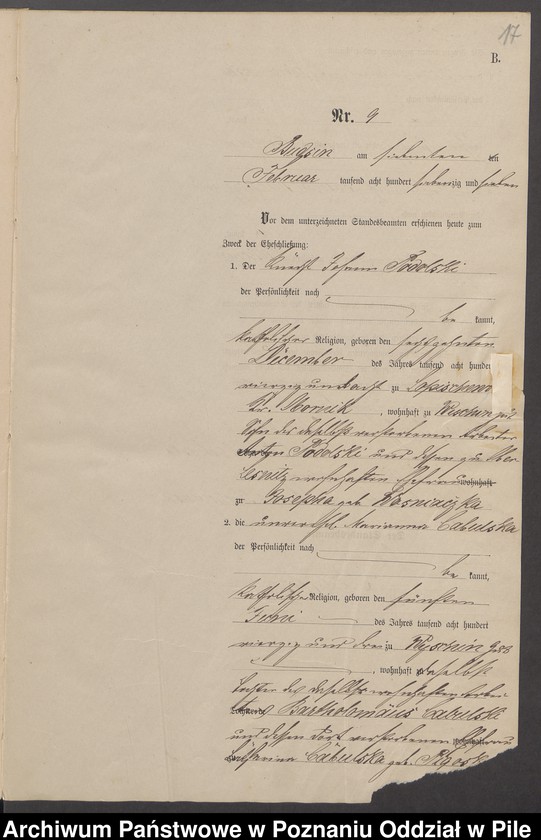 17
B.
Nr. 9
Budsin am siebenten ten
Februar tausend acht hundert siebenzig und sieben
Vor dem unterzeichneten Standesbeamten erschienen heute zum
Zweck der Eheschließung:
1. Der Knecht Johann Podolski
der Persönlichkeit nach
be kannt,
katholischer Religion, geboren den sechszehnten
December des Jahres tausend acht hundert
vierzig und acht zu
Kr. , wohnhaft zu
Sohn des daselbst verstorbenen Arbeiter
Podolski und dessen zu
wohnhaften Ehefrau wohnhaft
zu Josepha geb.
2. die unverehl. Marianna Cabulska
der Persönlichkeit nach
be kannt,
katholische Religion, geboren den fünften
Juni des Jahres tausend acht hundert
vierzig und drei zu Wyschin
, wohnhaft daselbst
Tochter des daselbst wohnhaften
Bartholomäus Cabulski
und dessen dort verstorbenen Ehefrau
Catharina Cabulska geb.
Archiwum Państwowe w Poznaniu Oddział w Pile